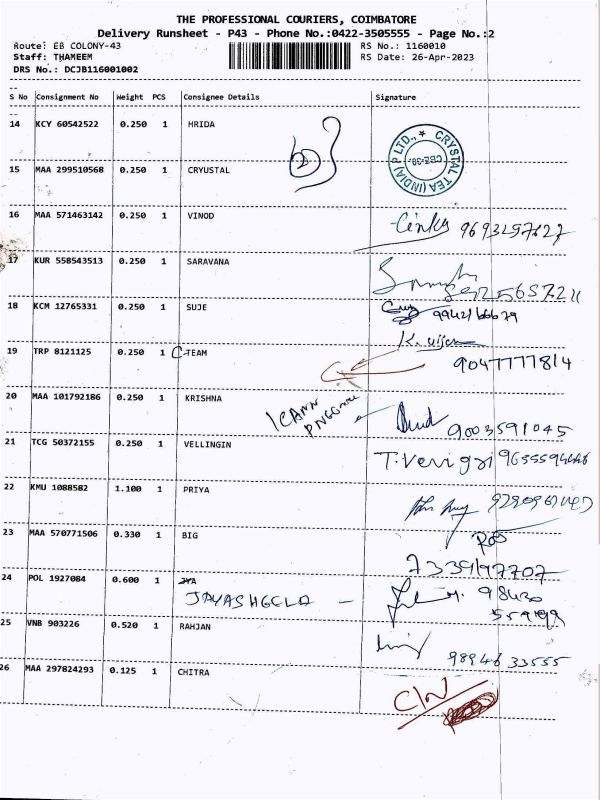 THE PROFESSIONAL COURIERS, COIMBATORE
Delivery Runsheet - P43 - Phone No.:0422-3505555 - Page No.:2
Route: EB COLONY-43 RS No.: 1160010
Staff: THAMEEM RS Date: 26-Apr-2023
DRS No.: DCJB116001002
S No Consignment No Weight PCS Consignee Details Signature
14 KCY 60542522 0.250 1 HRIDA
CRYSTAL TEA (INDIA) P LTD., * CBE-38.
15 MAA 299510568 0.250 1 CRYUSTAL
16 MAA 571463142 0.250 1 VINOD
17 KUR 558543513 0.250 1 SARAVANA
18 KCM 12765331 0.250 1 SUJE
19 TRP 8121125 0.250 1 C-TEAM
9047777814
20 MAA 101792186 0.250 1 KRISHNA
9003591045
21 TCG 50372155 0.250 1 VELLINGIN
22 KMU 1088582 1.100 1 PRIYA
23 MAA 570771506 0.330 1 BIG
7339197707
24 POL 1927084 0.600 1 JYA
JAYASHEELA -
25 VNB 903226 0.520 1 RAHJAN
9894633555
26 MAA 297824293 0.125 1 CHITRA